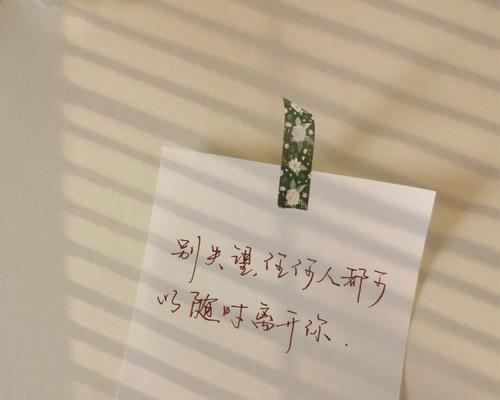 别失望,任何人都可
以随时离开你.